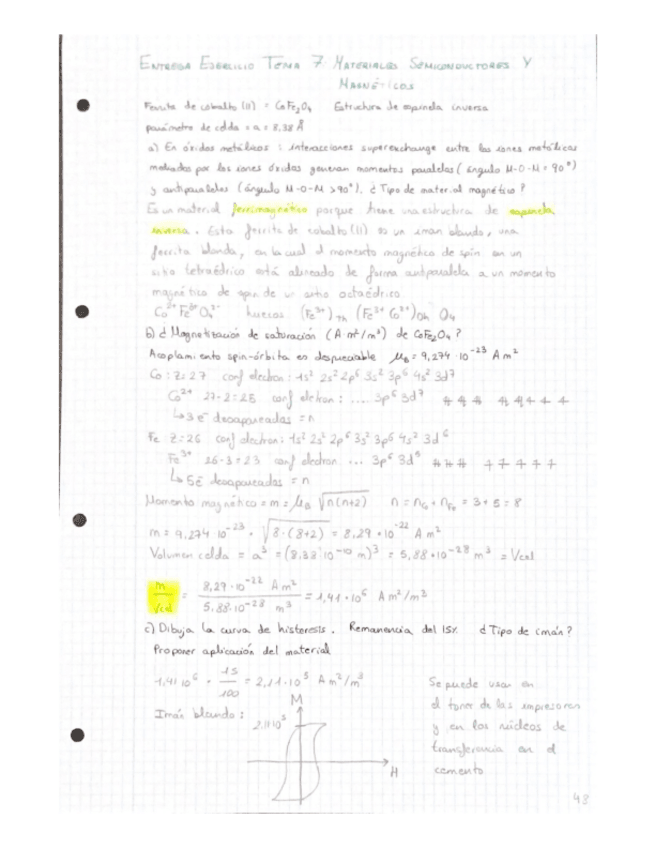 ENTREGA EJERCICIO TEMA 7: MATERIALES SEMICONDUCTORES Y
MAGNÉTICOS
Ferrita de cobalto (II) = CoFe2O4 Estructura de espinela inversa
parámetro de celda = a = 8,38 Å
a) En óxidos metálicos : interacciones superexchange entre los iones metálicos
mediados por los iones óxidos generan momentos paralelos (ángulo M-O-M = 90°)
y antiparalelos (ángulo M-O-M > 90°). ¿Tipo de material magnético?
Es un material ferrimagnético porque tiene una estructura de espinela
inversa. Esta ferrita de cobalto (II) es un iman blando, una
ferrita blanda, en la cual el momento magnético de spin en un
sitio tetraédrico está alineado de forma antiparalela a un momento
magnético de spin de un sitio octaédrico
Co²⁺Fe³⁺O₄²⁻ huecos (Fe³⁺)Th (Fe³⁺ Co²⁺)Oh O4
b) ¿Magnetización de saturación (A·m²/m³) de CoFe2O4?
Acoplamiento spin-órbita es despreciable μB = 9,274·10⁻²³ A m²
Co : Z=27 conf electron : 1s² 2s² 2p⁶ 3s² 3p⁶ 4s² 3d⁷
Co²⁺ 27-2=25 conf eletron : .... 3p⁶ 3d⁷
↳3 e⁻ desapareadas = n
Fe Z=26 conf electron: 1s² 2s² 2p⁶ 3s² 3p⁶ 4s² 3d⁶
Fe³⁺ 26-3=23 conf electron ... 3p⁶ 3d⁵
↳ 5e⁻ desapareadas = n
Momento magnético = m = μB √n(n+2) n = nCo + nFe = 3+5 = 8
m = 9,274·10⁻²³ · √8·(8+2) = 8,29·10⁻²² A m²
Volumen celda = a³ = (8,38·10⁻¹⁰ m)³ = 5,88·10⁻²⁸ m³ = Vcel
m/Vcel = 8,29·10⁻²² A m² / 5,88·10⁻²⁸ m³ = 1,41·10⁶ A m²/m³
c) Dibuja la curva de histeresis. Remanencia del 15%. ¿Tipo de imán?
Proponer aplicación del material
1,41·10⁶ · 15/100 = 2,11·10⁵ A m²/m³
Imán blando :
M
2,11·10⁵
H
Se puede usar en
el toner de las impresoras
y en los núcleos de
transferencia en el
cemento
43